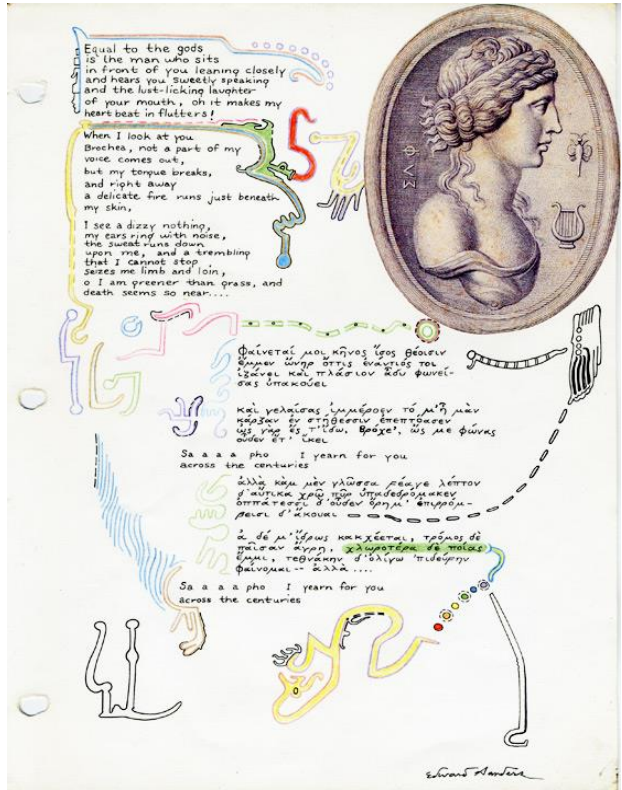 Equal to the gods
is the man who sits
in front of you leaning closely
and hears you sweetly speaking
and the lust-licking laughter
of your mouth, oh it makes my
heart beat in flutters!
When I look at you
Brochea, not a part of my
voice comes out,
but my tongue breaks,
and right away
a delicate fire runs just beneath
my skin,
I see a dizzy nothing,
my ears ring with noise,
the sweat runs down
upon me, and a trembling
that I cannot stop
seizes me limb and loin,
o I am greener than grass, and
death seems so near....
ΦΥΣ
φαίνεταί μοι κῆνος ἴσος θέοισιν
ἔμμεν ὤνηρ ὄττις ἐναντίος τοι
ἰζάνει καὶ πλάσιον ἆδυ φωνεί-
σας ὐπακούει
καὶ γελαίσας ἰμμέροεν τό μ'ἦ μὰν
κάρζαν ἐν στήθεσσιν ἐπεπτόασεν
ὠς γὰρ ἔς τ'ἴδω, Βρόχε', ὤς με φώνας
οὖδεν ἔτ' ἴκει
Sa a a a pho I yearn for you
across the centuries
ἀλλὰ κὰμ μὲν γλῶσσα ϝέαγε λέπτον
δ'αὔτικα χρῷ πῦρ ὐπαδεδρόμακεν
ὀππάτεσσι δ'οὖδεν ὄρημ' ἐπιρρόμ-
βεισι δ'ἄκουαι
ἀ δέ μ'ἴδρως κακχέεται, τρόμος δὲ
παῖσαν ἄγρη, χλωροτέρα δὲ ποίας
ἔμμι, τεθνάκην δ'ὀλίγω 'πιδεύην
φαίνομαι -- ἀλλὰ ....
Sa a a a pho I yearn for you
across the centuries
Edward Sanders